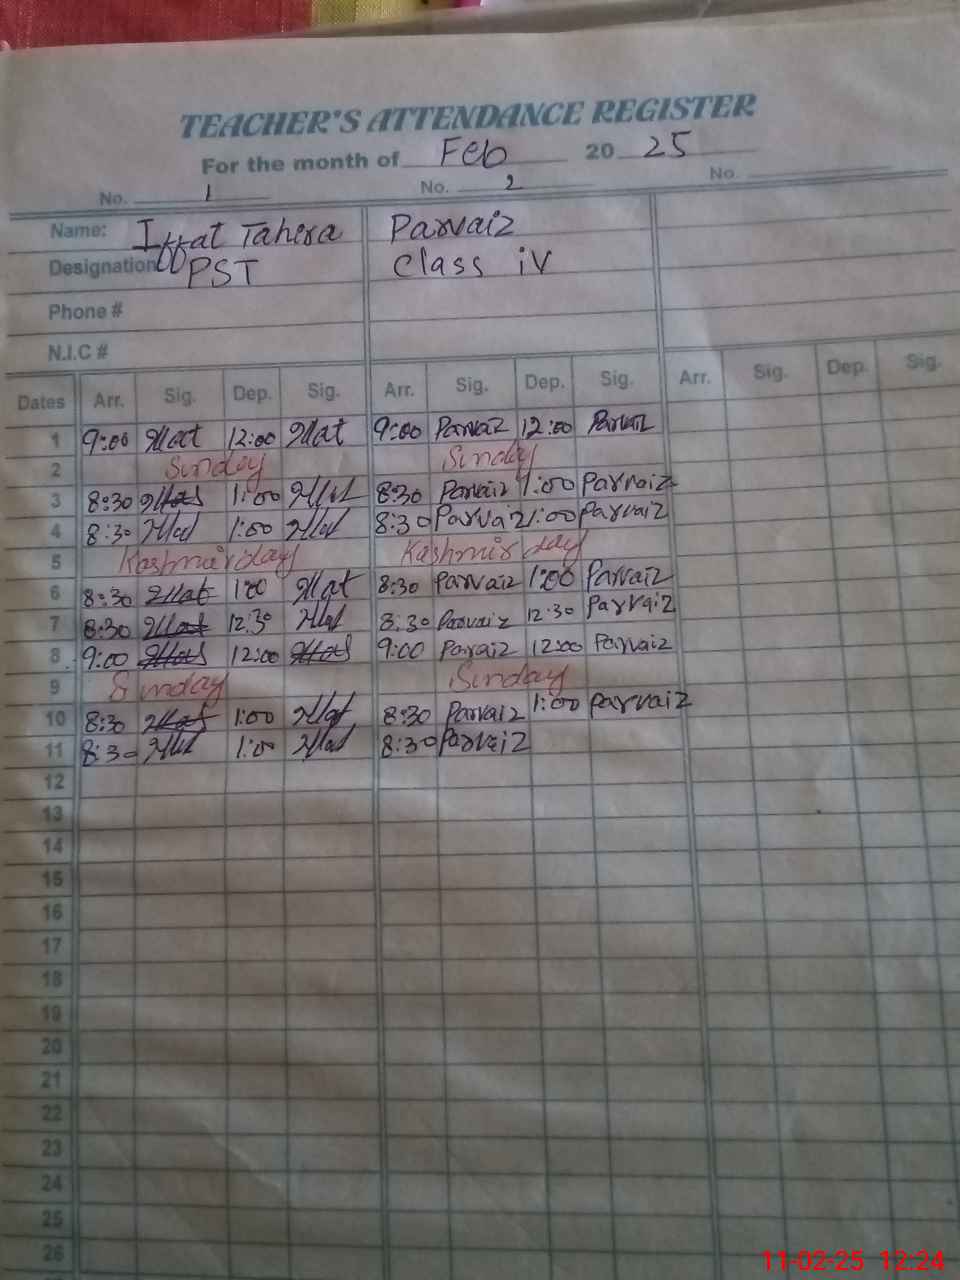 TEACHER'S ATTENDANCE REGISTER
For the month of Feb 20 25
No. 1 No. 2 No.
Name: Iffat Tahira Parvaiz
Designation PST Class iV
Phone #
N.I.C #
Dates Arr. Sig. Dep. Sig. Arr. Sig. Dep. Sig. Arr. Sig. Dep. Sig.
1 9:00 12:00 9:00 Parvaiz 12:00 Parvaiz
2 Sunday Sunday
3 8:30 1:00 8:30 Parvaiz 1:00 Parvaiz
4 8:30 1:00 8:30 Parvaiz 1:00 Parvaiz
5 Kashmir day Kashmir day
6 8:30 1:00 8:30 Parvaiz 1:00 Parvaiz
7 8:30 12:30 8:30 Parvaiz 12:30 Parvaiz
8 9:00 12:00 9:00 Parvaiz 12:00 Parvaiz
9 Sunday Sunday
10 8:30 1:00 8:30 Parvaiz 1:00 Parvaiz
11 8:30 1:00 8:30 Parvaiz
12
13
14
15
16
17
18
19
20
21
22
23
24
25
26
11-02-25 12:24